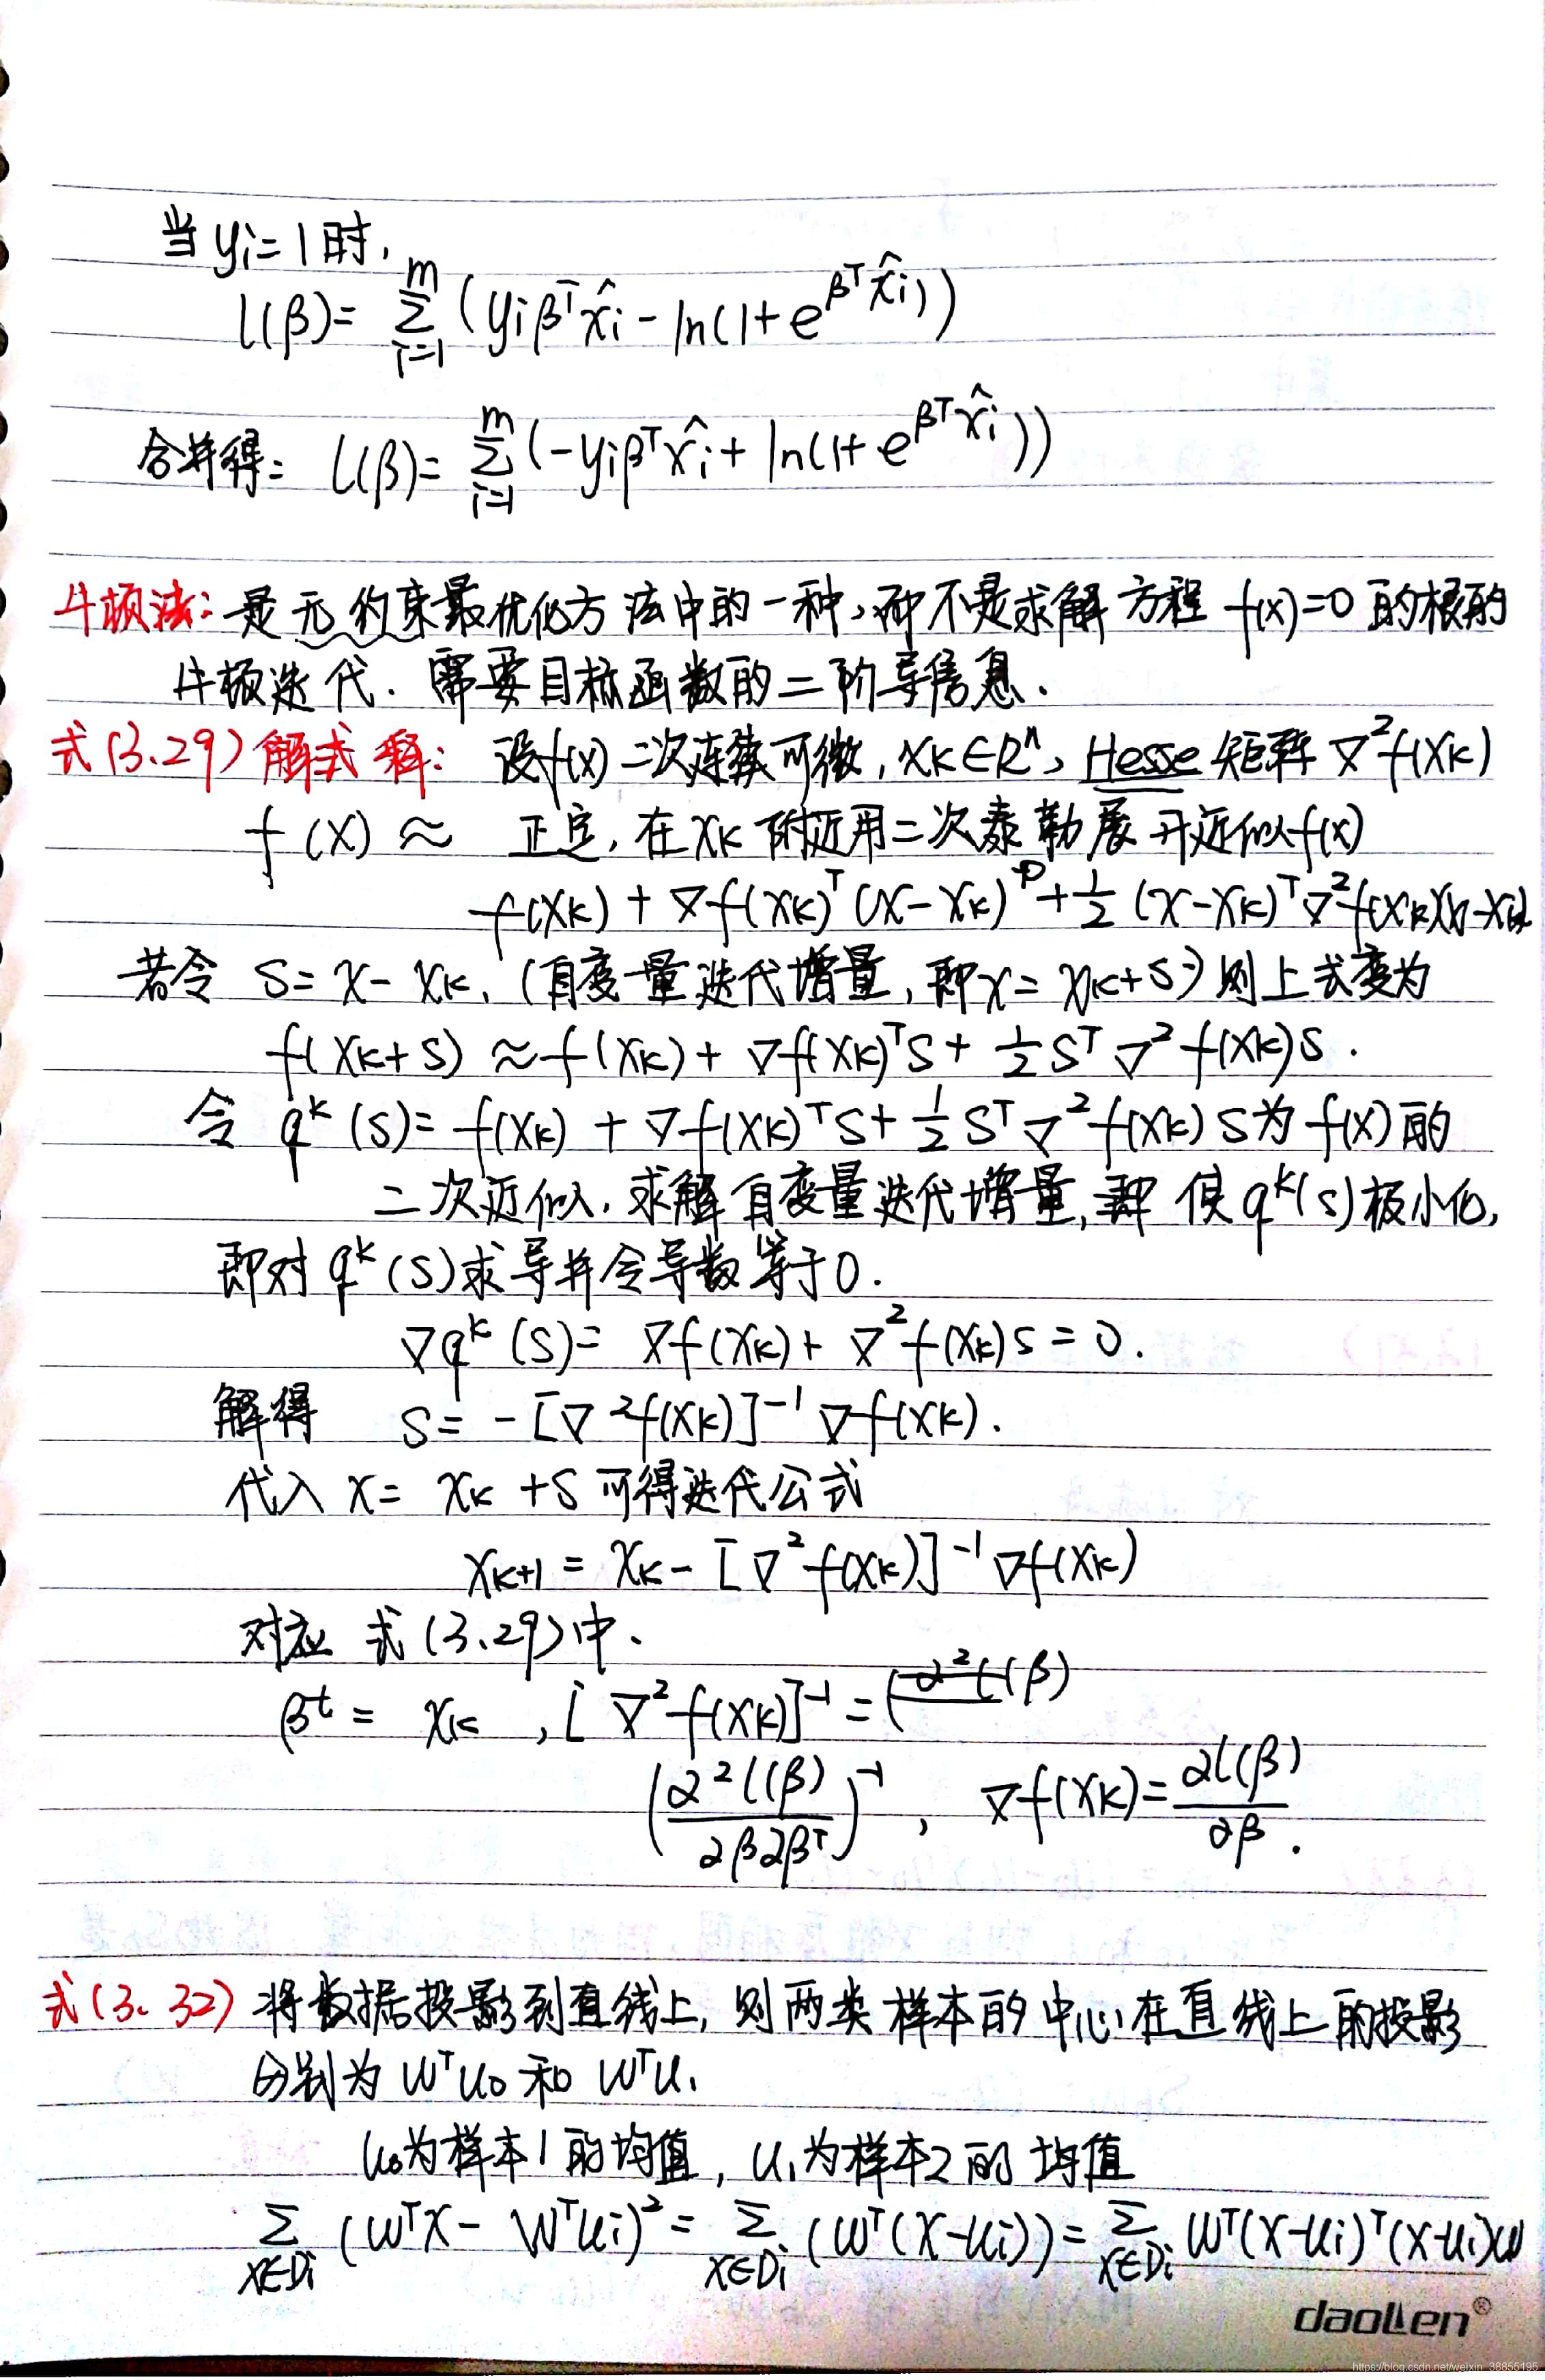 当 yi=1时,
l(β)= Σ_{i=1}^{m} (yiβ^T x̂i - ln(1+e^{β^T x̂i}))
合并得: l(β)= Σ_{i=1}^{m} (-yiβ^T x̂i + ln(1+e^{β^T x̂i}))
牛顿法: 是无约束最优化方法中的一种,而不是求解方程 f(x)=0 的根的
牛顿迭代. 需要目标函数的二阶导信息.
式(3.29)解释: 设f(x)二次连续可微, xK∈R^n, Hesse矩阵 ∇²f(xK)
f(x) ≈ 正定, 在xK附近用二次泰勒展开近似f(x)
f(xK) + ∇f(xK)^T (x-xK) + 1/2 (x-xK)^T ∇²f(xK)(x-xK)
若令 S= x- xK, (自变量迭代增量, 即x= xK+S) 则上式变为
f(xK+S) ≈ f(xK) + ∇f(xK)^T S + 1/2 S^T ∇² f(xK)S.
令 q^k(S)= f(xK) + ∇f(xK)^T S + 1/2 S^T ∇² f(xK) S为 f(x)的
二次近似, 求解自变量迭代增量, 即 使 q^k(s)极小化,
即对 q^k(S)求导并令导数等于0.
∇q^k (S)= ∇f(xK) + ∇²f(xK)s = 0.
解得 S= -[∇²f(xK)]^{-1} ∇f(xK).
代入 x= xK +S 可得迭代公式
xK+1 = xK - [∇² f(xK)]^{-1} ∇f(xK)
对应 式(3.29)中.
β^t = xK , [∇² f(xK)]^{-1} = (∂²l(β)
(∂²l(β)/∂β∂β^T)^{-1}, ∇f(xK)= ∂l(β)/∂β.
式(3.32) 将数据投影到直线上, 则两类样本的中心在直线上的投影
分别为 W^T u0 和 W^T u1
u0为样本1的均值, u1为样本2的均值
Σ_{x∈Di} (W^T x - W^T ui)² = Σ_{x∈Di} (W^T(x-ui)) = Σ_{x∈Di} W^T(x-ui)^T(x-ui)W
daoLen®
https://blog.csdn.net/weixin_38855195